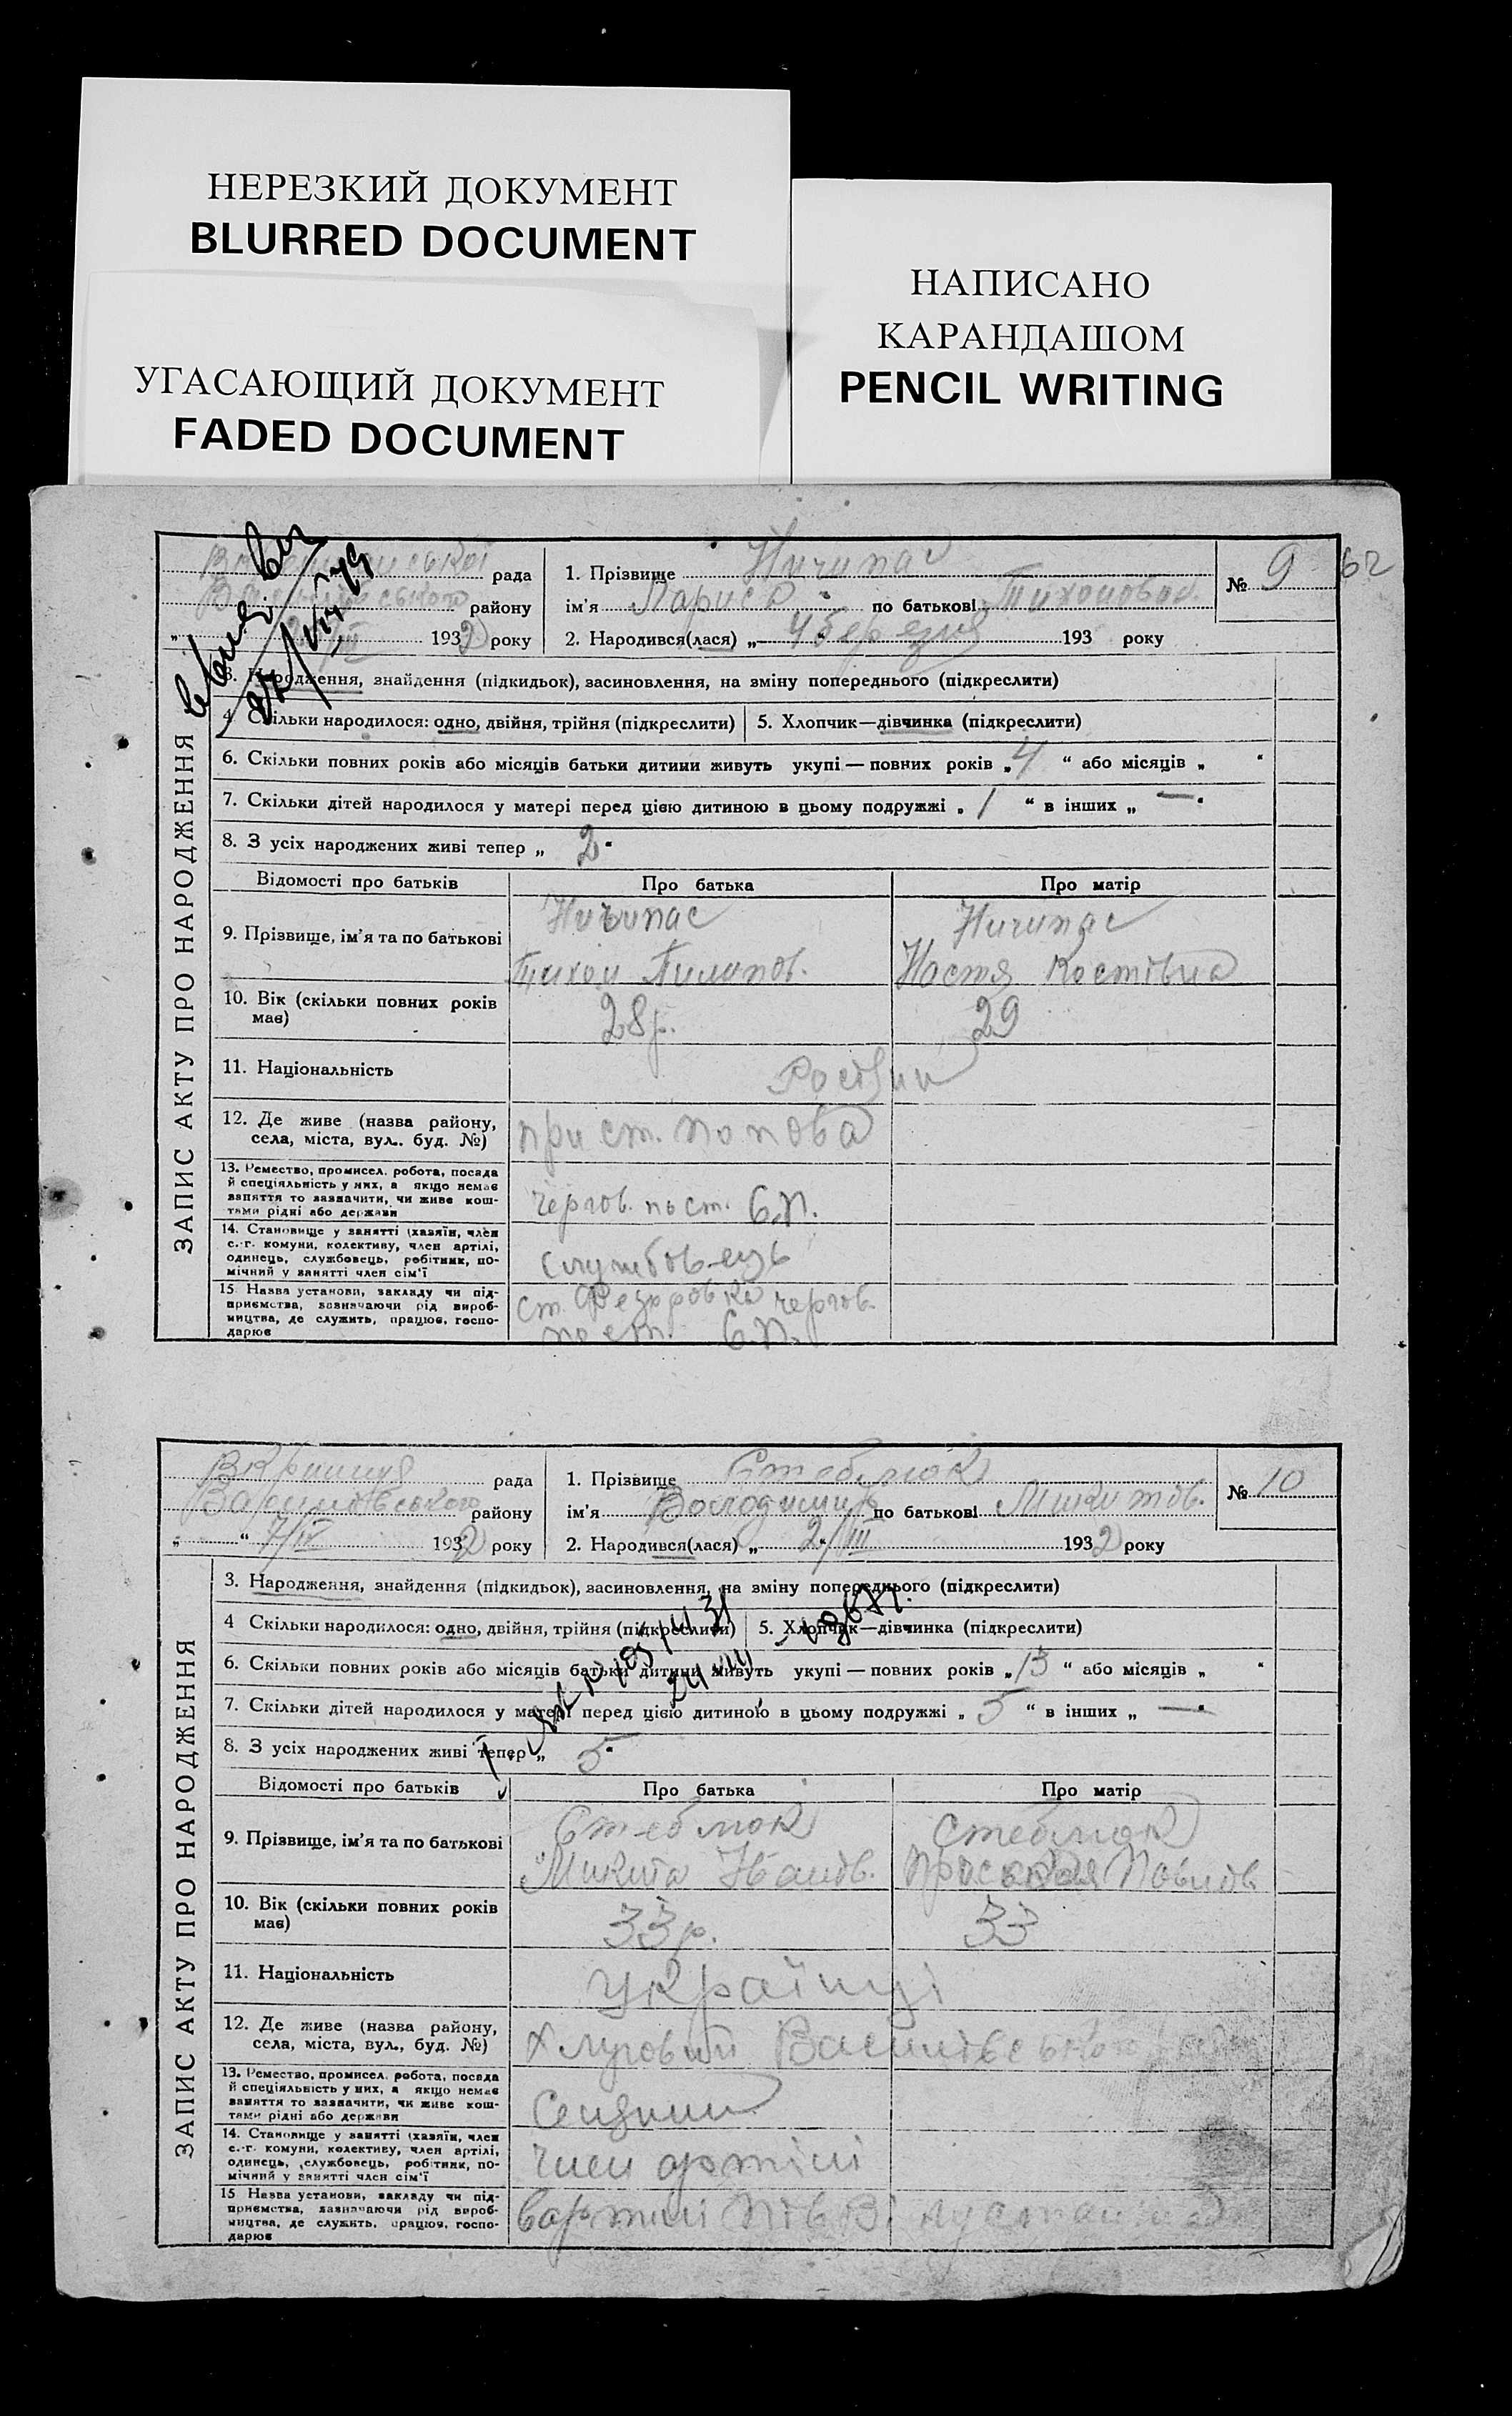 НЕРЕЗКИЙ ДОКУМЕНТ
BLURRED DOCUMENT
УГАСАЮЩИЙ ДОКУМЕНТ
FADED DOCUMENT
НАПИСАНО
КАРАНДАШОМ
PENCIL WRITING
62
ЗАПИС АКТУ ПРО НАРОДЖЕННЯ
рада
району
1932 року
1. Прізвище Ничипас
ім'я Лариса по батькові Тихоновна
2. Народився(лася) „ 4 березня 193 року
№ 9
3. Народження, знайдення (підкидьок), засиновлення, на зміну попереднього (підкреслити)
4. Скільки народилося: одно, двійня, трійня (підкреслити)
5. Хлопчик—дівчинка (підкреслити)
6. Скільки повних років або місяців батьки дитини живуть укупі — повних років „ 4 “ або місяців „ “
7. Скільки дітей народилося у матері перед цією дитиною в цьому подружжі „ 1 “ в інших „ — “
8. З усіх народжених живі тепер „ 2 “
Відомості про батьків Про батька Про матір
9. Прізвище, ім'я та по батькові Ничипас Ничипас
Тихон Пилипов. Настя Костівна
10. Вік (скільки повних років має) 28 р. 29
11. Національність
12. Де живе (назва району, села, міста, вул., буд. №) при ст. Попова
13. Ремество, промисел, робота, посада
й спеціяльність у них, а якщо немає
заняття то зазначити, чи живе кош-
тами рідні або держави
чергов. по ст. С.П.
14. Становище у занятті (хазяїн, член
с.-г. комуни, колективу, член артілі,
одинець, службовець, робітник, по-
мічний у занятті член сім'ї
службовець
15. Назва установи, закладу чи під-
приємства, зазначаючи рід вироб-
ництва, де служить, працює, госпо-
дарює
ст. Федоровка чергов.
по ст. С.П.
ЗАПИС АКТУ ПРО НАРОДЖЕННЯ
рада
Василівського району
„ “ 7/IV 1932 року
1. Прізвище Стеблюк
ім'я Володимир по батькові Микитов.
2. Народився(лася) „ 2/III 1932 року
№ 10
3. Народження, знайдення (підкидьок), засиновлення, на зміну попереднього (підкреслити)
4 Скільки народилося: одно, двійня, трійня (підкреслити)
5. Хлопчик—дівчинка (підкреслити)
6. Скільки повних років або місяців батьки дитини живуть укупі — повних років „ 13 “ або місяців „ “
7. Скільки дітей народилося у матері перед цією дитиною в цьому подружжі „ 5 “ в інших „ — “
8. З усіх народжених живі тепер „ 5 “
Відомості про батьків Про батька Про матір
9. Прізвище, ім'я та по батькові Стеблюк Стеблюк
Микита Іванов.
10. Вік (скільки повних років має) 33 р. 33
11. Національність Українці
12. Де живе (назва району, села, міста, вул., буд. №)
13. Ремество, промисел, робота, посада
й спеціяльність у них, а якщо немає
заняття то зазначити, чи живе кош-
тами рідні або держави
14. Становище у занятті (хазяїн, член
с.-г. комуни, колективу, член артілі,
одинець, службовець, робітник, по-
мічний у занятті член сім'ї
член артілі
15 Назва установи, закладу чи під-
приємства, зазначаючи рід вироб-
ництва, де служить, працює, госпо-
дарює
в артілі